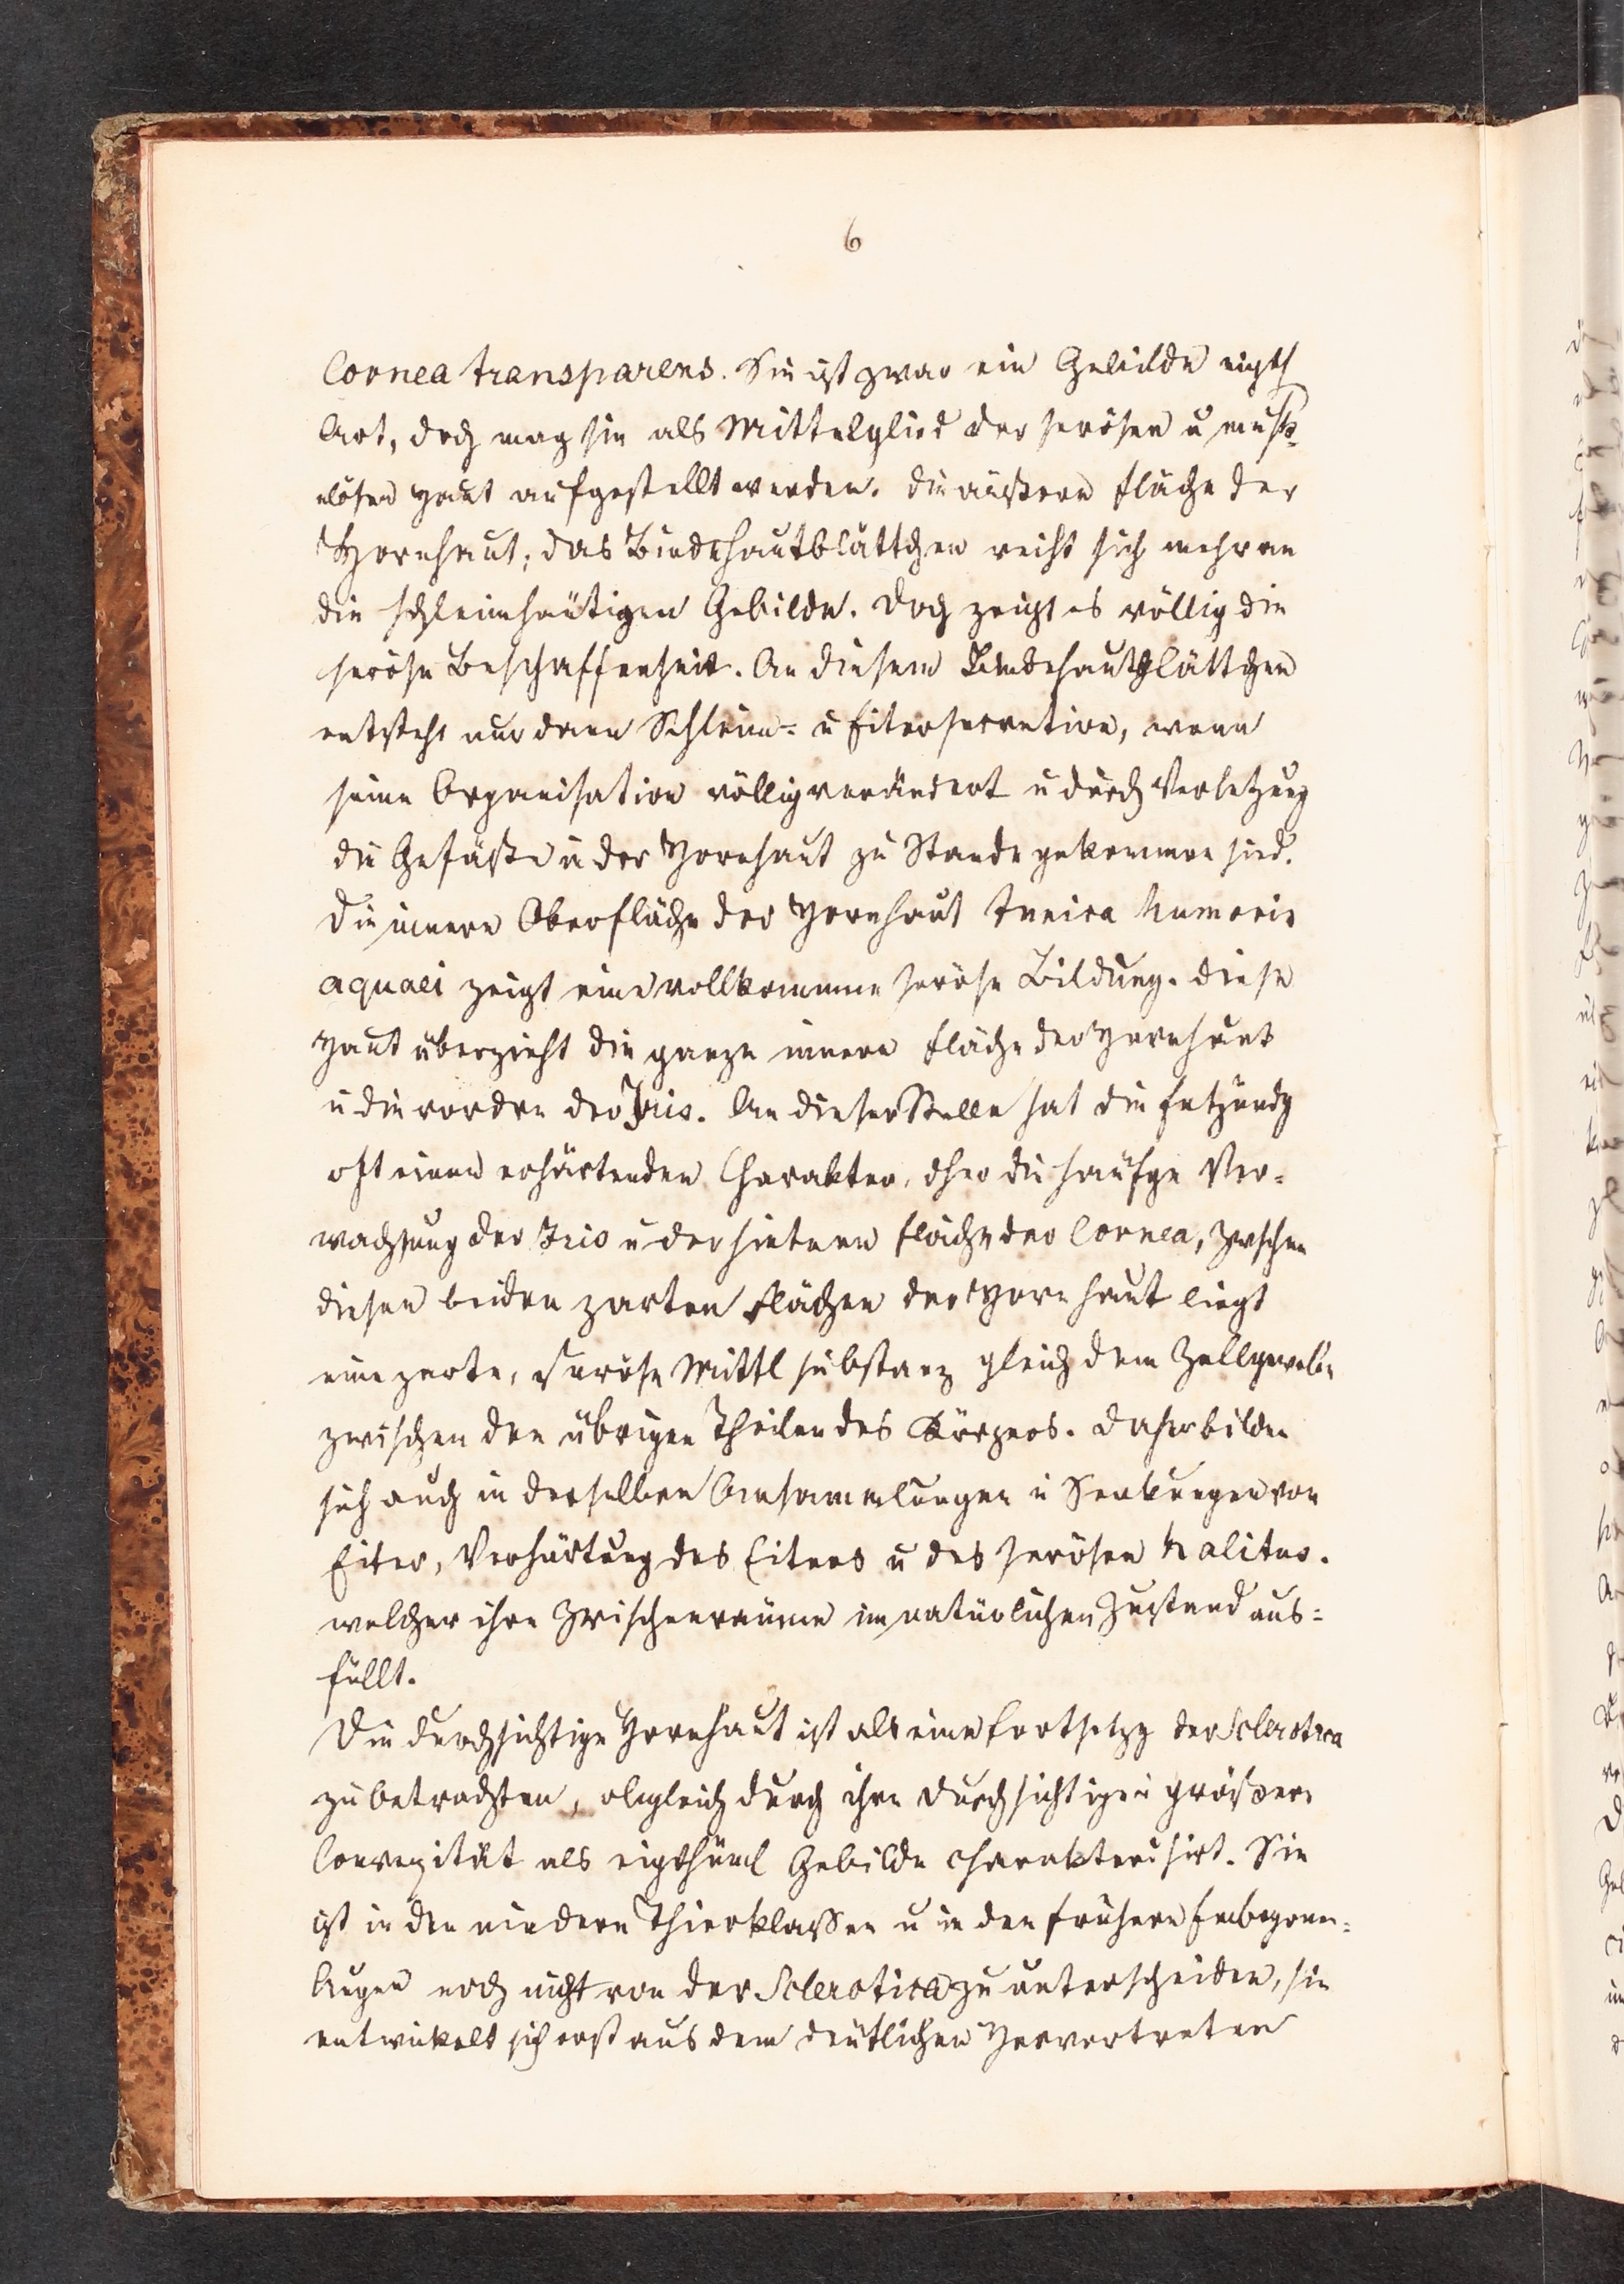 6
Cornea transparens. Sie ist zwar ein Gebilde eigth
Art, doch mag sie als Mittelglied der serösen u musk-
ulösen Haut aufgestellt werden. die äußere Fläche der
Hornhaut; das Bindehautblättchen reiht sich mehr an
die schleimhäutigen Gebilde. Doch zeigt es völlig die
seröse Beschaffenheit. An diesem Bindehautblättchen
entsteht nur dann Schleim= u Eitersecretion, wenn
seine Organisation völlig verändert u durch Verletzung
die Gefäße u der Hornhaut zu Stande gekommen sind.
Die innere Oberfläche der Hornhaut tunica humoris
aquaei zeigt eine vollkommene seröse Bildung. diese
Haut überzieht die ganze innere Fläche der Hornhaut
u die vordre der Iris. An dieser Stelle hat die Entzündg
oft einen erhärtenden Charakter, dher die häufge Ver=
wachsung der Iris u der hintern Fläche der Cornea, Zwschen
diesen beiden zarten Flächen der Hornhaut liegt
eine zarte, seröse Mittl substanz gleich dem Zellgewebe
zwischen den übrigen Theilen des Körpers. Daher bilden
sich auch in derselben Ansammlungen u Senkungen von
Eiter, Verhärtung des Eiters u des serösen halitus.
welcher ihre Zwischenräume im natürlichen Zustand aus=
füllt.
Die durchsichtige Hornhaut ist als eine Fortsetzg der Sclerotica
zu betrachten, obgleich durch ihre durchsichtige u größere
Convexität als eigthüml Gebilde charakterisirt. Sie
ist in den niedern Thierklassen u in den frühern Embryonen=
Augen noch nicht von der Sclerotica zu unterscheiden, sie
entwickelt sich erst aus dem deutlichen Hervortreten